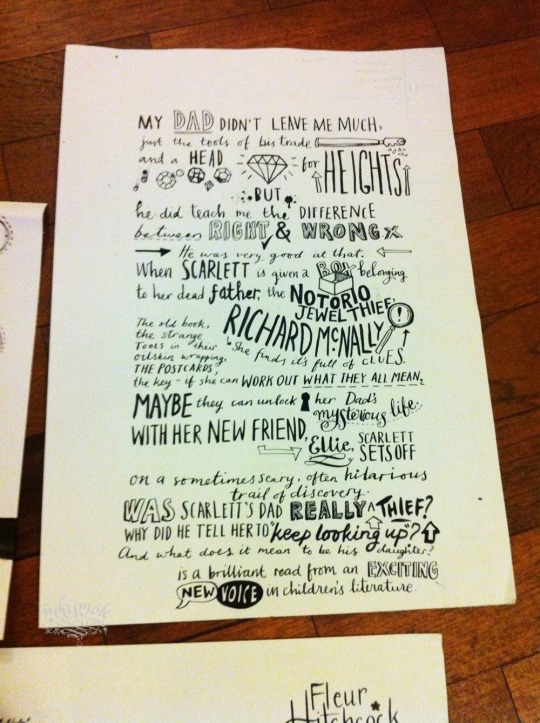 MY DAD DIDN'T LEAVE ME MUCH,
just the tools of his trade
and a HEAD for HEIGHTS
BUT
he did teach me the DIFFERENCE
between RIGHT & WRONG X
He was very good at that.
When SCARLETT is given a BOX belonging
to her dead father, the NOTORIO
JEWEL THIEF,
RICHARD McNALLY
The old book,
the strange
TOOLS in their
oilskin wrapping,
THE POSTCARDS,
She finds it's full of CLUES.
the key - if she can WORK OUT WHAT THEY ALL MEAN,
MAYBE they can unlock her Dad's
mysterious life.
WITH HER NEW FRIEND, Ellie, SCARLETT
SETS OFF
on a sometimes scary, often hilarious
trail of discovery.
WAS SCARLETT'S DAD REALLY A THIEF?
WHY DID HE TELL HER TO "keep looking up"?
And what does it mean to be his daughter?
is a brilliant read from an EXCITING
NEW VOICE in children's literature.
Fleur
Hitchcock